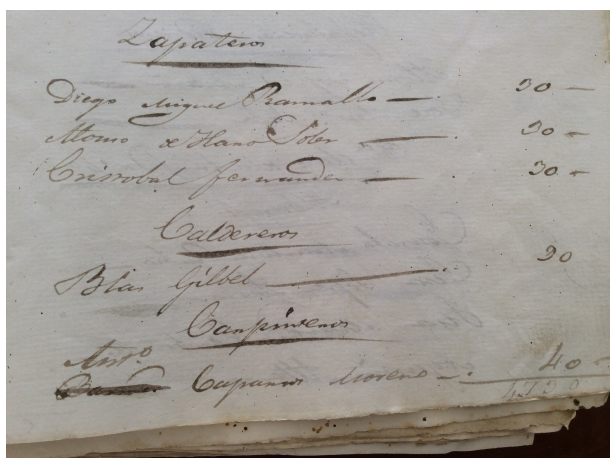 Zapateros
Diego Miguel Ramallo — 30 —
Alonso de Haro Soler — 30 —
Cristobal fernandez — 30 —
Caldereros
Blas Gilbel — 30
Carpinteros
Antº
Caparros Moreno — 40 —